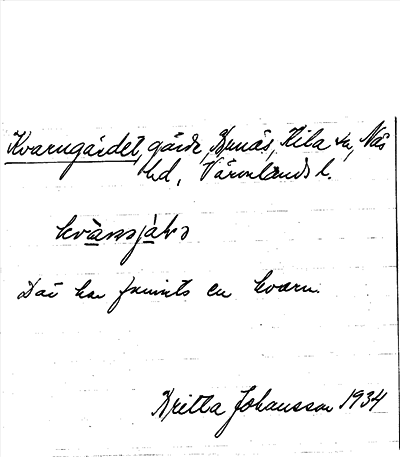 Kvarngärdet, gärde, Bynäs, Kila sn, Näs
hd, Värmlands l.
Där har funnits en kvarn.
Britta Johansson 1934